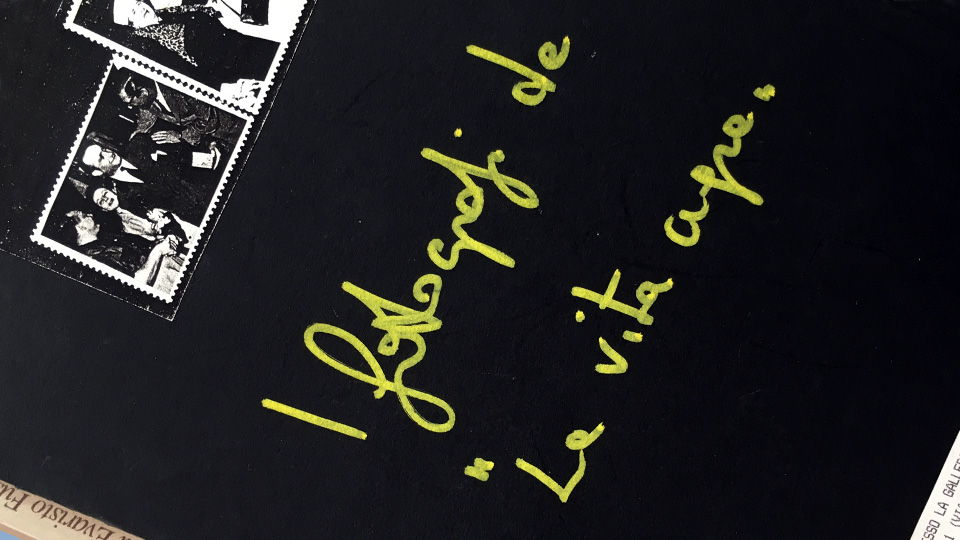 I fotografi de
"La vita agra"
Evaristo Fus
ESSO LA GALLE
1 (VIA